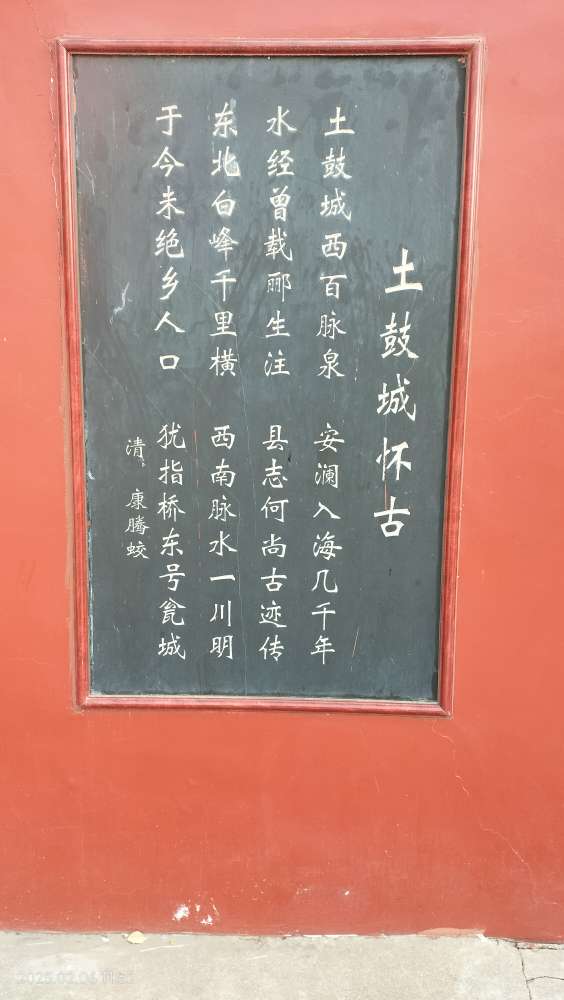 土鼓城怀古
土鼓城西百脉泉 安澜入海几千年
水经曾载郦生注 县志何尚古迹传
东北白峰千里横 西南脉水一川明
于今未绝乡人口 犹指桥东号瓮城
清、康腾蛟